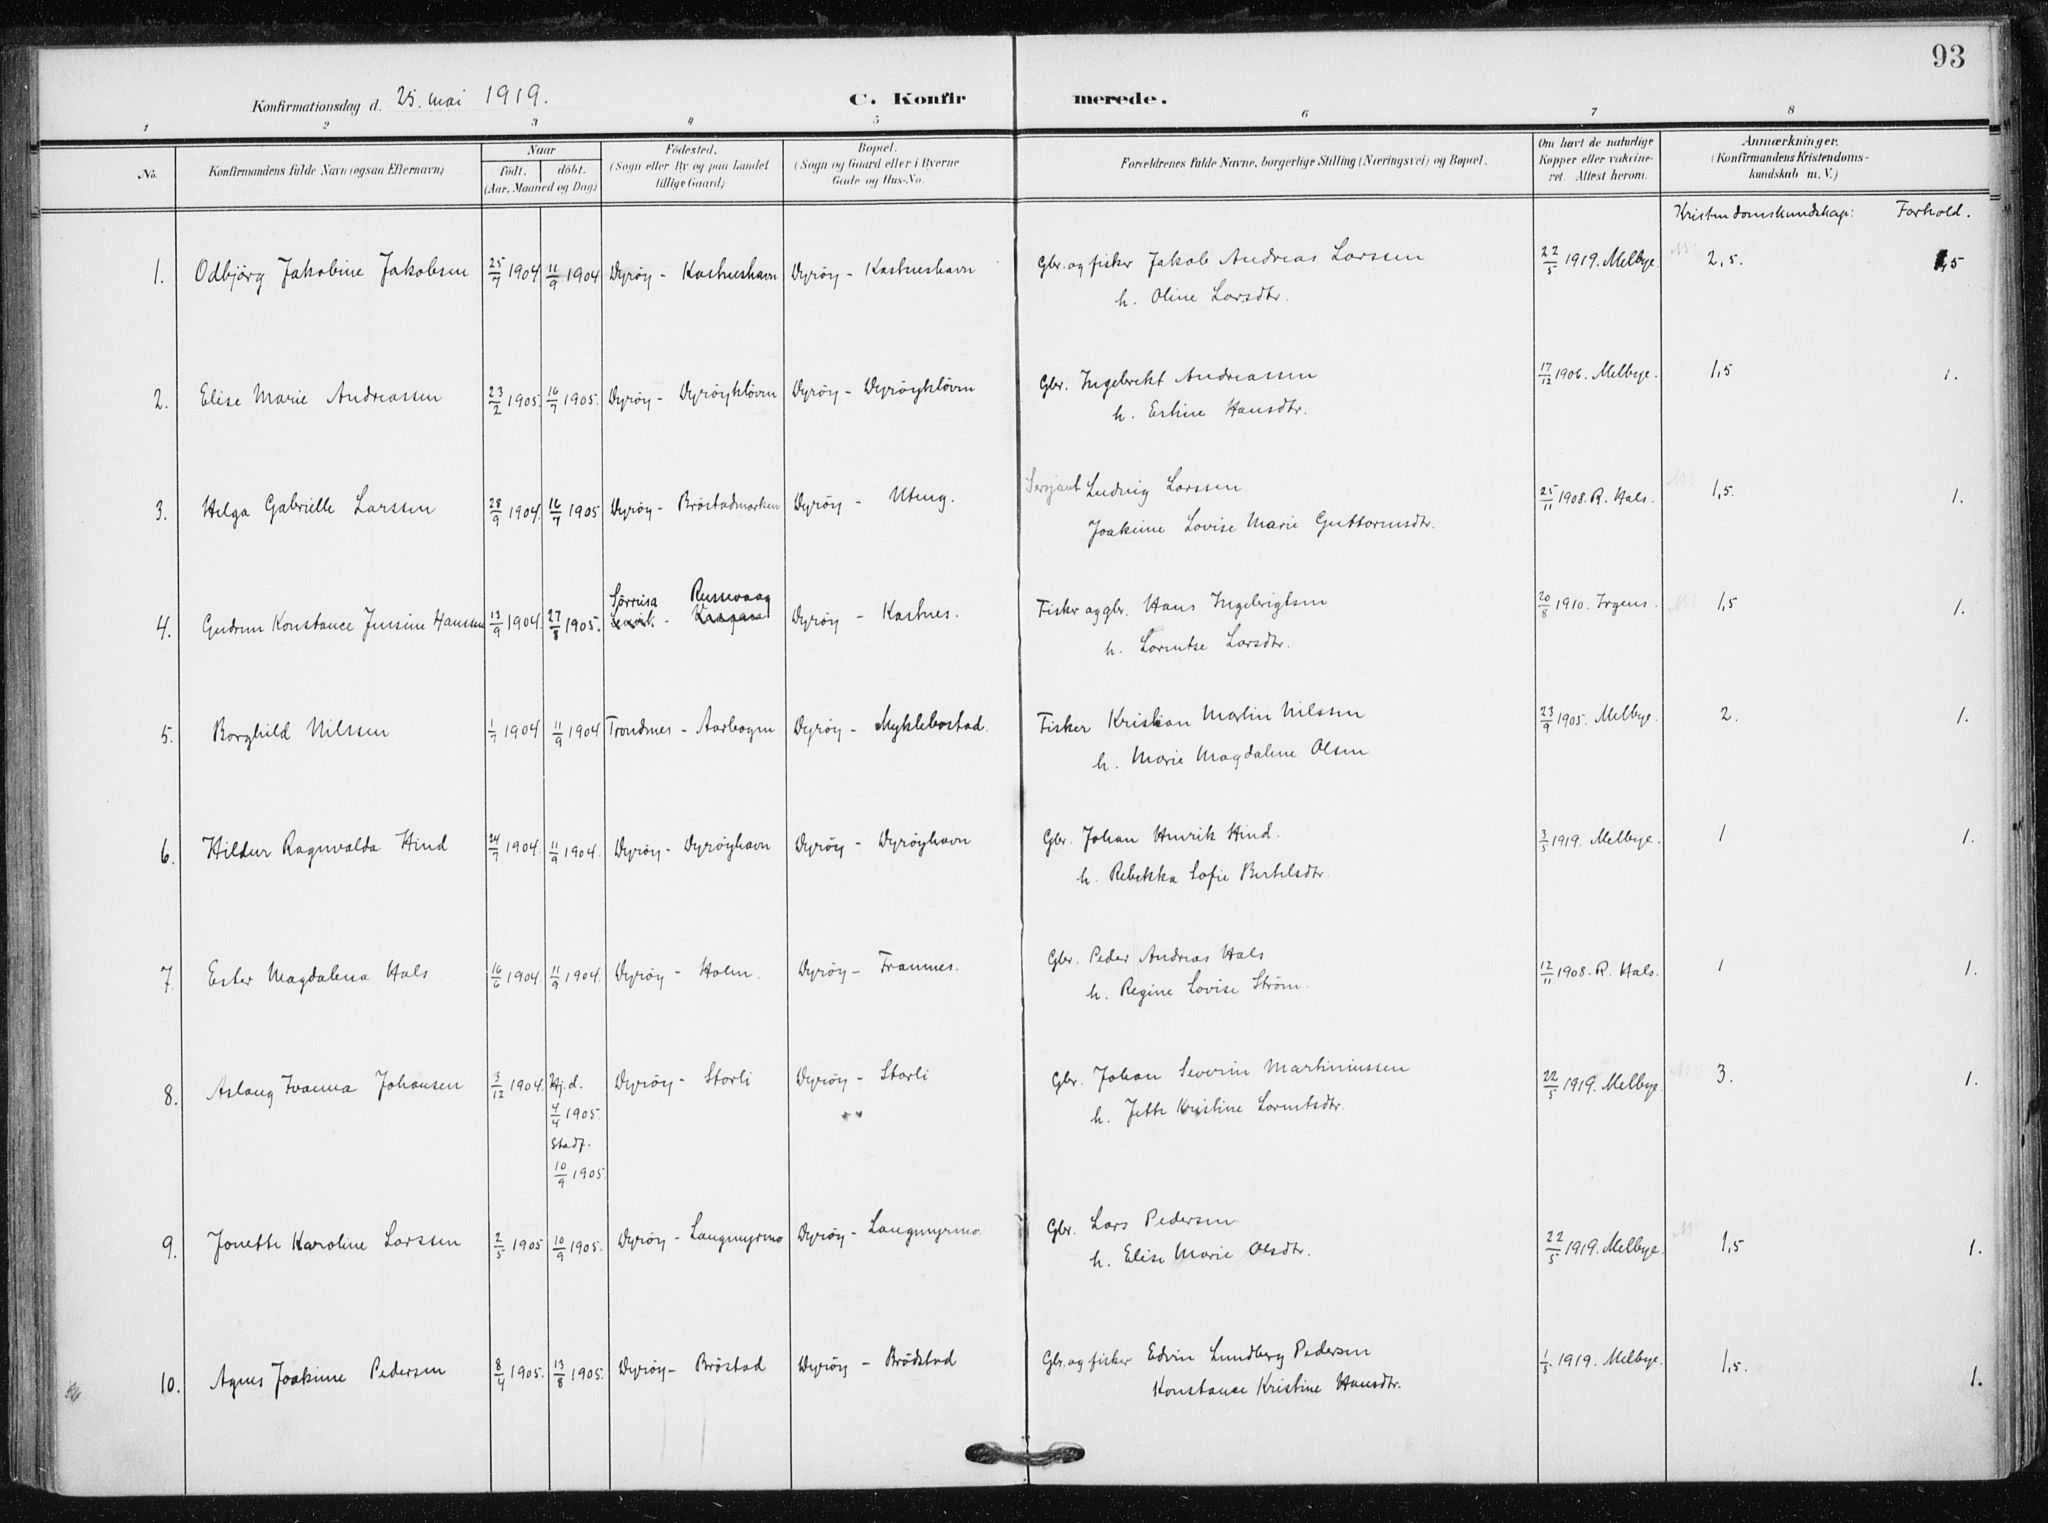 93
Konfirmationsdag d. 25. mai 1919. C. Konfir merede.
1 2 3 4 5 6 7 8
No. Konfirmandens fulde Navn (ogsaa Efternavn)
Naar
födt. döbt.
(Aar, Maaned og Dag)
Födested.
(Sogn eller By og paa Landet
tillige Gaard)
Bopæl.
(Sogn og Gaard eller i Byerne
Gade og Hus-No.
Forældrenes fulde Navne, borgerlige Stilling (Næringsvei) og Bopæl.
Om havt de naturlige
Kopper eller vakcine-
ret. Attest herom.
Anmærkninger.
(Konfirmandens Kristendoms-
kundskab m. V.)
Kristendomskundskap: Forhold.
1. Odbjörg Jakobine Jakobsen 25/7 1904 11/9 1904 Dyröy - Kastneshavn Dyröy - Kastneshavn Gbr. og fisker Jakob Andreas Larssen 22/5 1919. Melbye. 2,5. 1,5
h. Oline Larsdtr.
2. Elise Marie Andreassen 23/2 1905. 16/7 1905. Dyröy - Dyröykloven Dyröy - Dyröykloven Gbr. Ingebrekt Andreassen 17/12 1906. Melbye. 1,5 1.
h. Ertine Hansdtr.
3. Helga Gabrielle Larssen 28/9 1904. 16/7 1905 Dyröy - Bröstadmarken Dyröy - Uteng. Sersjant Ludvig Larssen 25/11 1908. R. Hals. 1,5. 1.
Joakine Lovise Marie Guttormsdtr.
4. Gudrun Konstance Jensine Hanssen 13/9 1904. 27/8 1905. Sørreisa Russevaag Dyröy - Kastnes. Fisker og gbr. Hans Ingebrigtsen 20/8 1910. Irgens. 1,5 1.
h. Lorentse Larsdtr.
5. Borghild Nilssen 1/7 1904 11/9 1904 Trondnes - Aarbogen Dyröy - Myklebostad. Fisker Kristian Martin Nilssen 23/9 1905. Melbye. 2. 1.
h. Marie Magdalene Olsen
6. Hildur Ragnvalda Hind 24/7 1904. 11/9 1904. Dyröy - Dyröyhavn Dyröy - Dyröyhavn Gbr. Johan Henrik Hind. 3/5 1919. Melbye. 1 1.
h. Rebekka Sofie Bertelsdtr.
7. Ester Magdalena Hals 16/6 1904. 11/9 1904. Dyröy - Holm. Dyröy - Framnes. Gbr. Peder Andreas Hals 12/11 1908. R. Hals. 1 1.
h. Regine Lovise Strøm.
8. Aslaug Ivanna Johansen 3/12 1904. Hj.d. Dyröy - Storli Dyröy - Storli Gbr. Johan Severin Martiniussen 22/5 1919. Melbye. 3. 1.
4/4 1905. h. Jette Kristine Lorentsdtr.
Stadf.
10/9 1905.
9. Jonette Karoline Larssen 2/5 1905 10/9 1905. Dyröy - Langmyrmo Dyröy - Langmyrmo. Gbr. Lars Pedersen 22/5 1919. Melbye. 1,5 1.
h. Elise Marie Olsdtr.
10. Agnes Joakime Pedersen 8/4 1905. 13/8 1905. Dyröy - Bröstad Dyröy - Brödstad Gbr. og fisker Edvin Lundberg Pedersen 1/5 1919. Melbye. 1,5. 1.
Konstance Kristine Hansdtr.